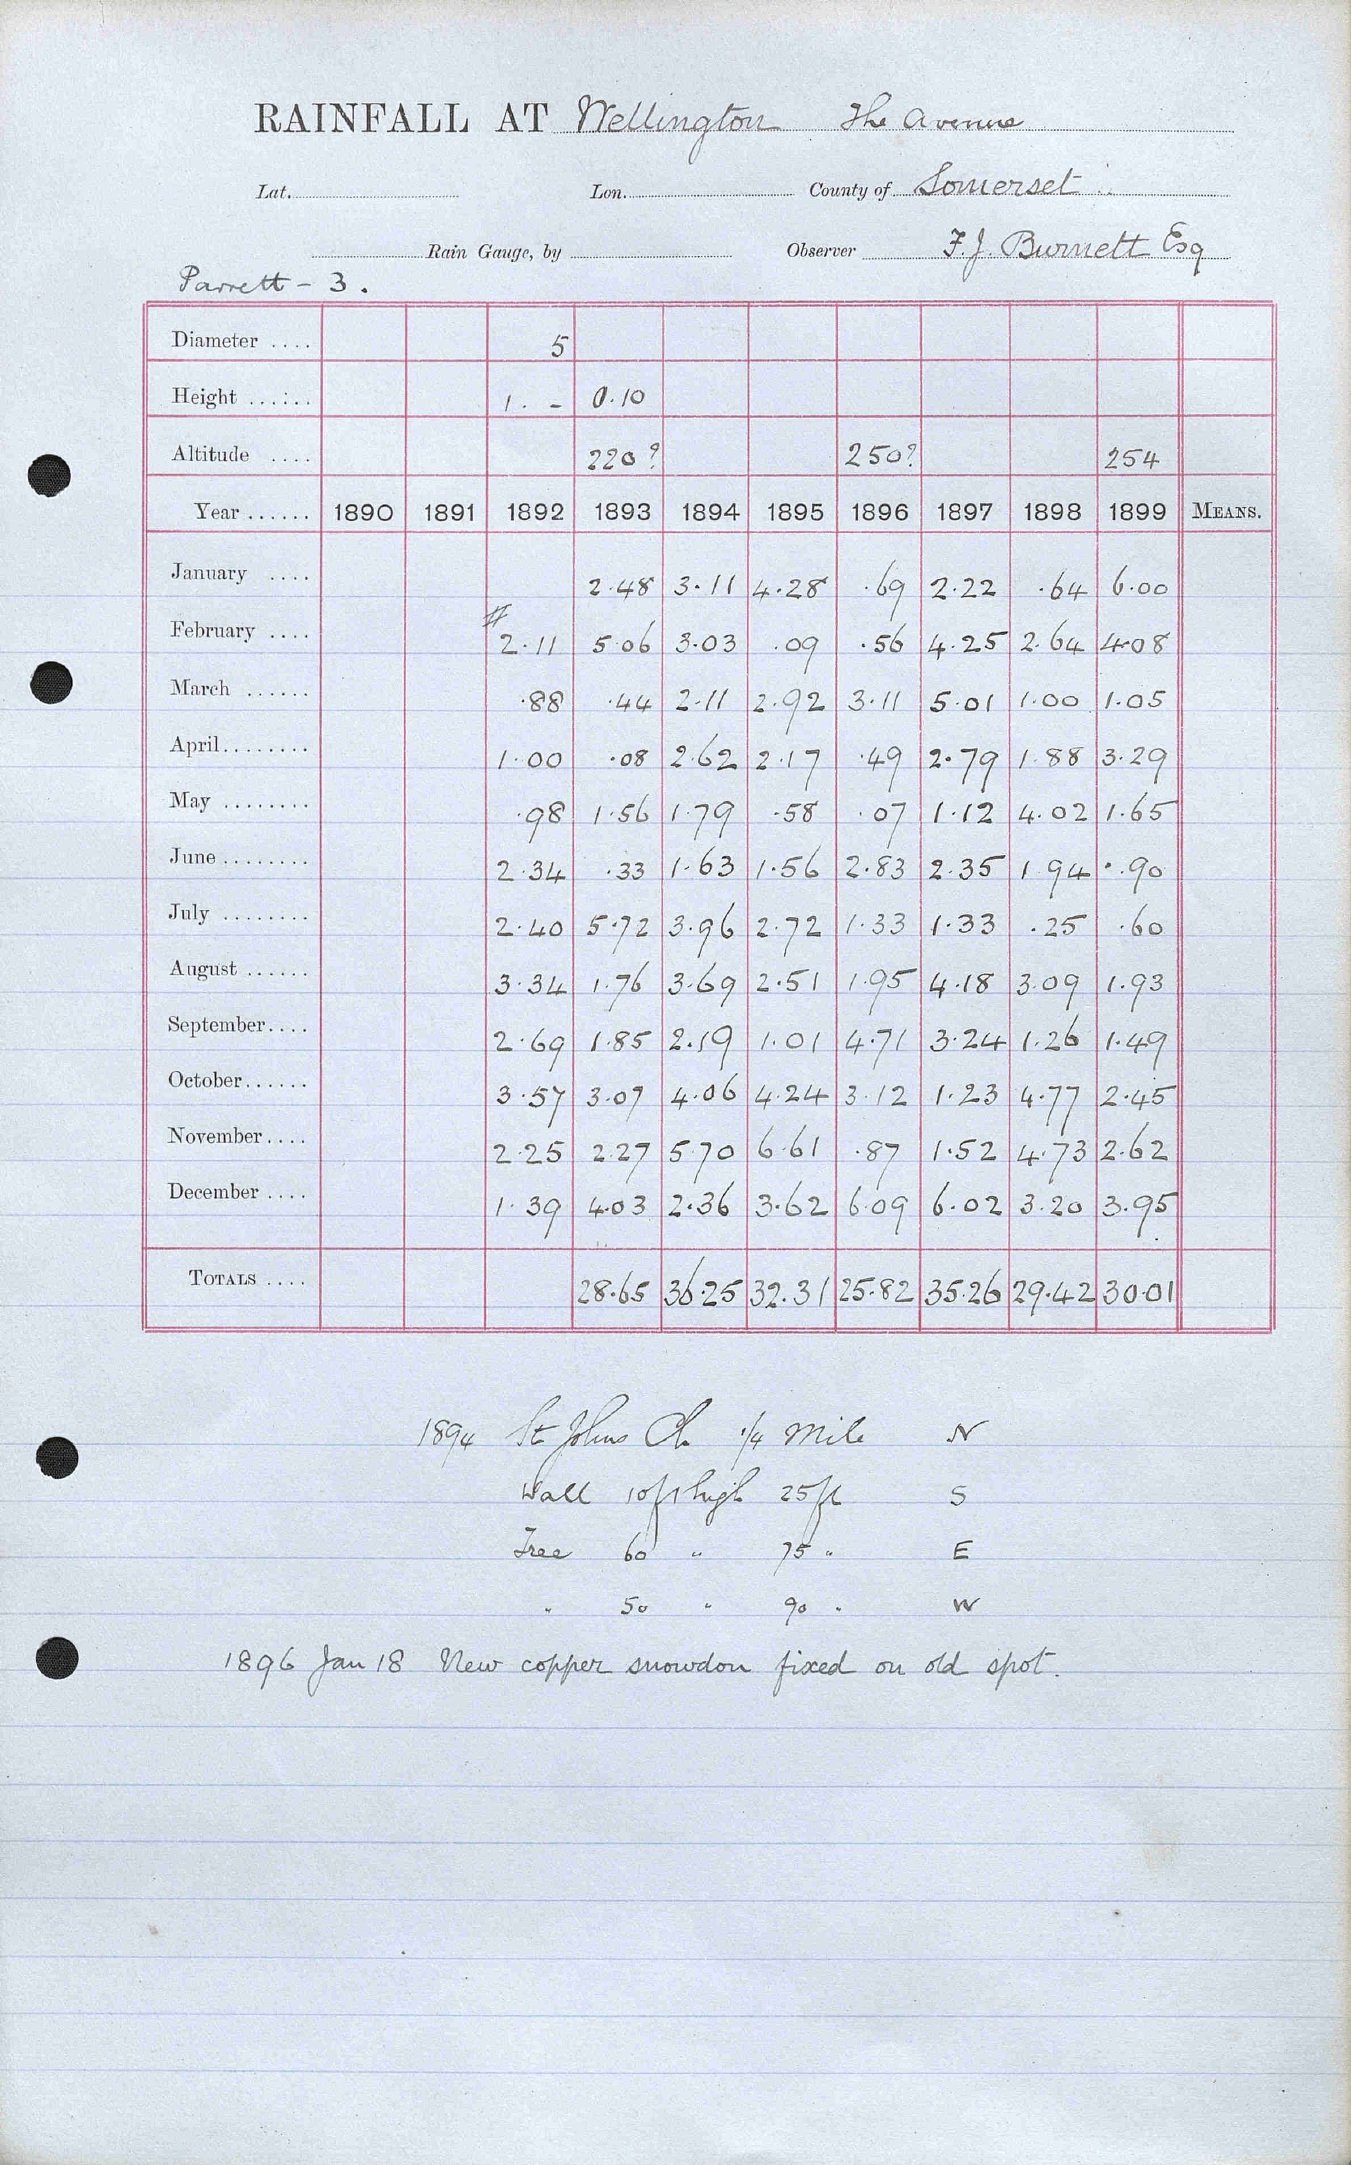 RAINFALL AT Wellington The Avenue
Lat. Lon. County of Somerset
Rain Gauge, by Observer F. J. Burnett Esq
Parrett - 3.
Diameter .... 5
Height ...... 1. - 0.10
Altitude .... 220? 250? 254
Year ...... 1890 1891 1892 1893 1894 1895 1896 1897 1898 1899 MEANS.
January .... 2.48 3.11 4.28 .69 2.22 .64 6.00
February .... # 2.11 5.06 3.03 .09 .56 4.25 2.64 4.08
March ...... .88 .44 2.11 2.92 3.11 5.01 1.00 1.05
April ........ 1.00 .08 2.62 2.17 .49 2.79 1.88 3.29
May ........ .98 1.56 1.79 .58 .07 1.12 4.02 1.65
June ........ 2.34 .33 1.63 1.56 2.83 2.35 1.94 .90
July ........ 2.40 5.72 3.96 2.72 1.33 1.33 .25 .60
August ...... 3.34 1.76 3.69 2.51 1.95 4.18 3.09 1.93
September.... 2.69 1.85 2.19 1.01 4.71 3.24 1.26 1.49
October...... 3.57 3.07 4.06 4.24 3.12 1.23 4.77 2.45
November.... 2.25 2.27 5.70 6.61 .87 1.52 4.73 2.62
December .... 1.39 4.03 2.36 3.62 6.09 6.02 3.20 3.95
TOTALS .... 28.65 36.25 32.31 25.82 35.26 29.42 30.01
1894 St Johns Ch. 1/4 Mile N
Wall 10ft high 25ft S
Tree 60 " 75 " E
" 50 " 90 " W
1896 Jan 18 New copper snowdon fixed on old spot.